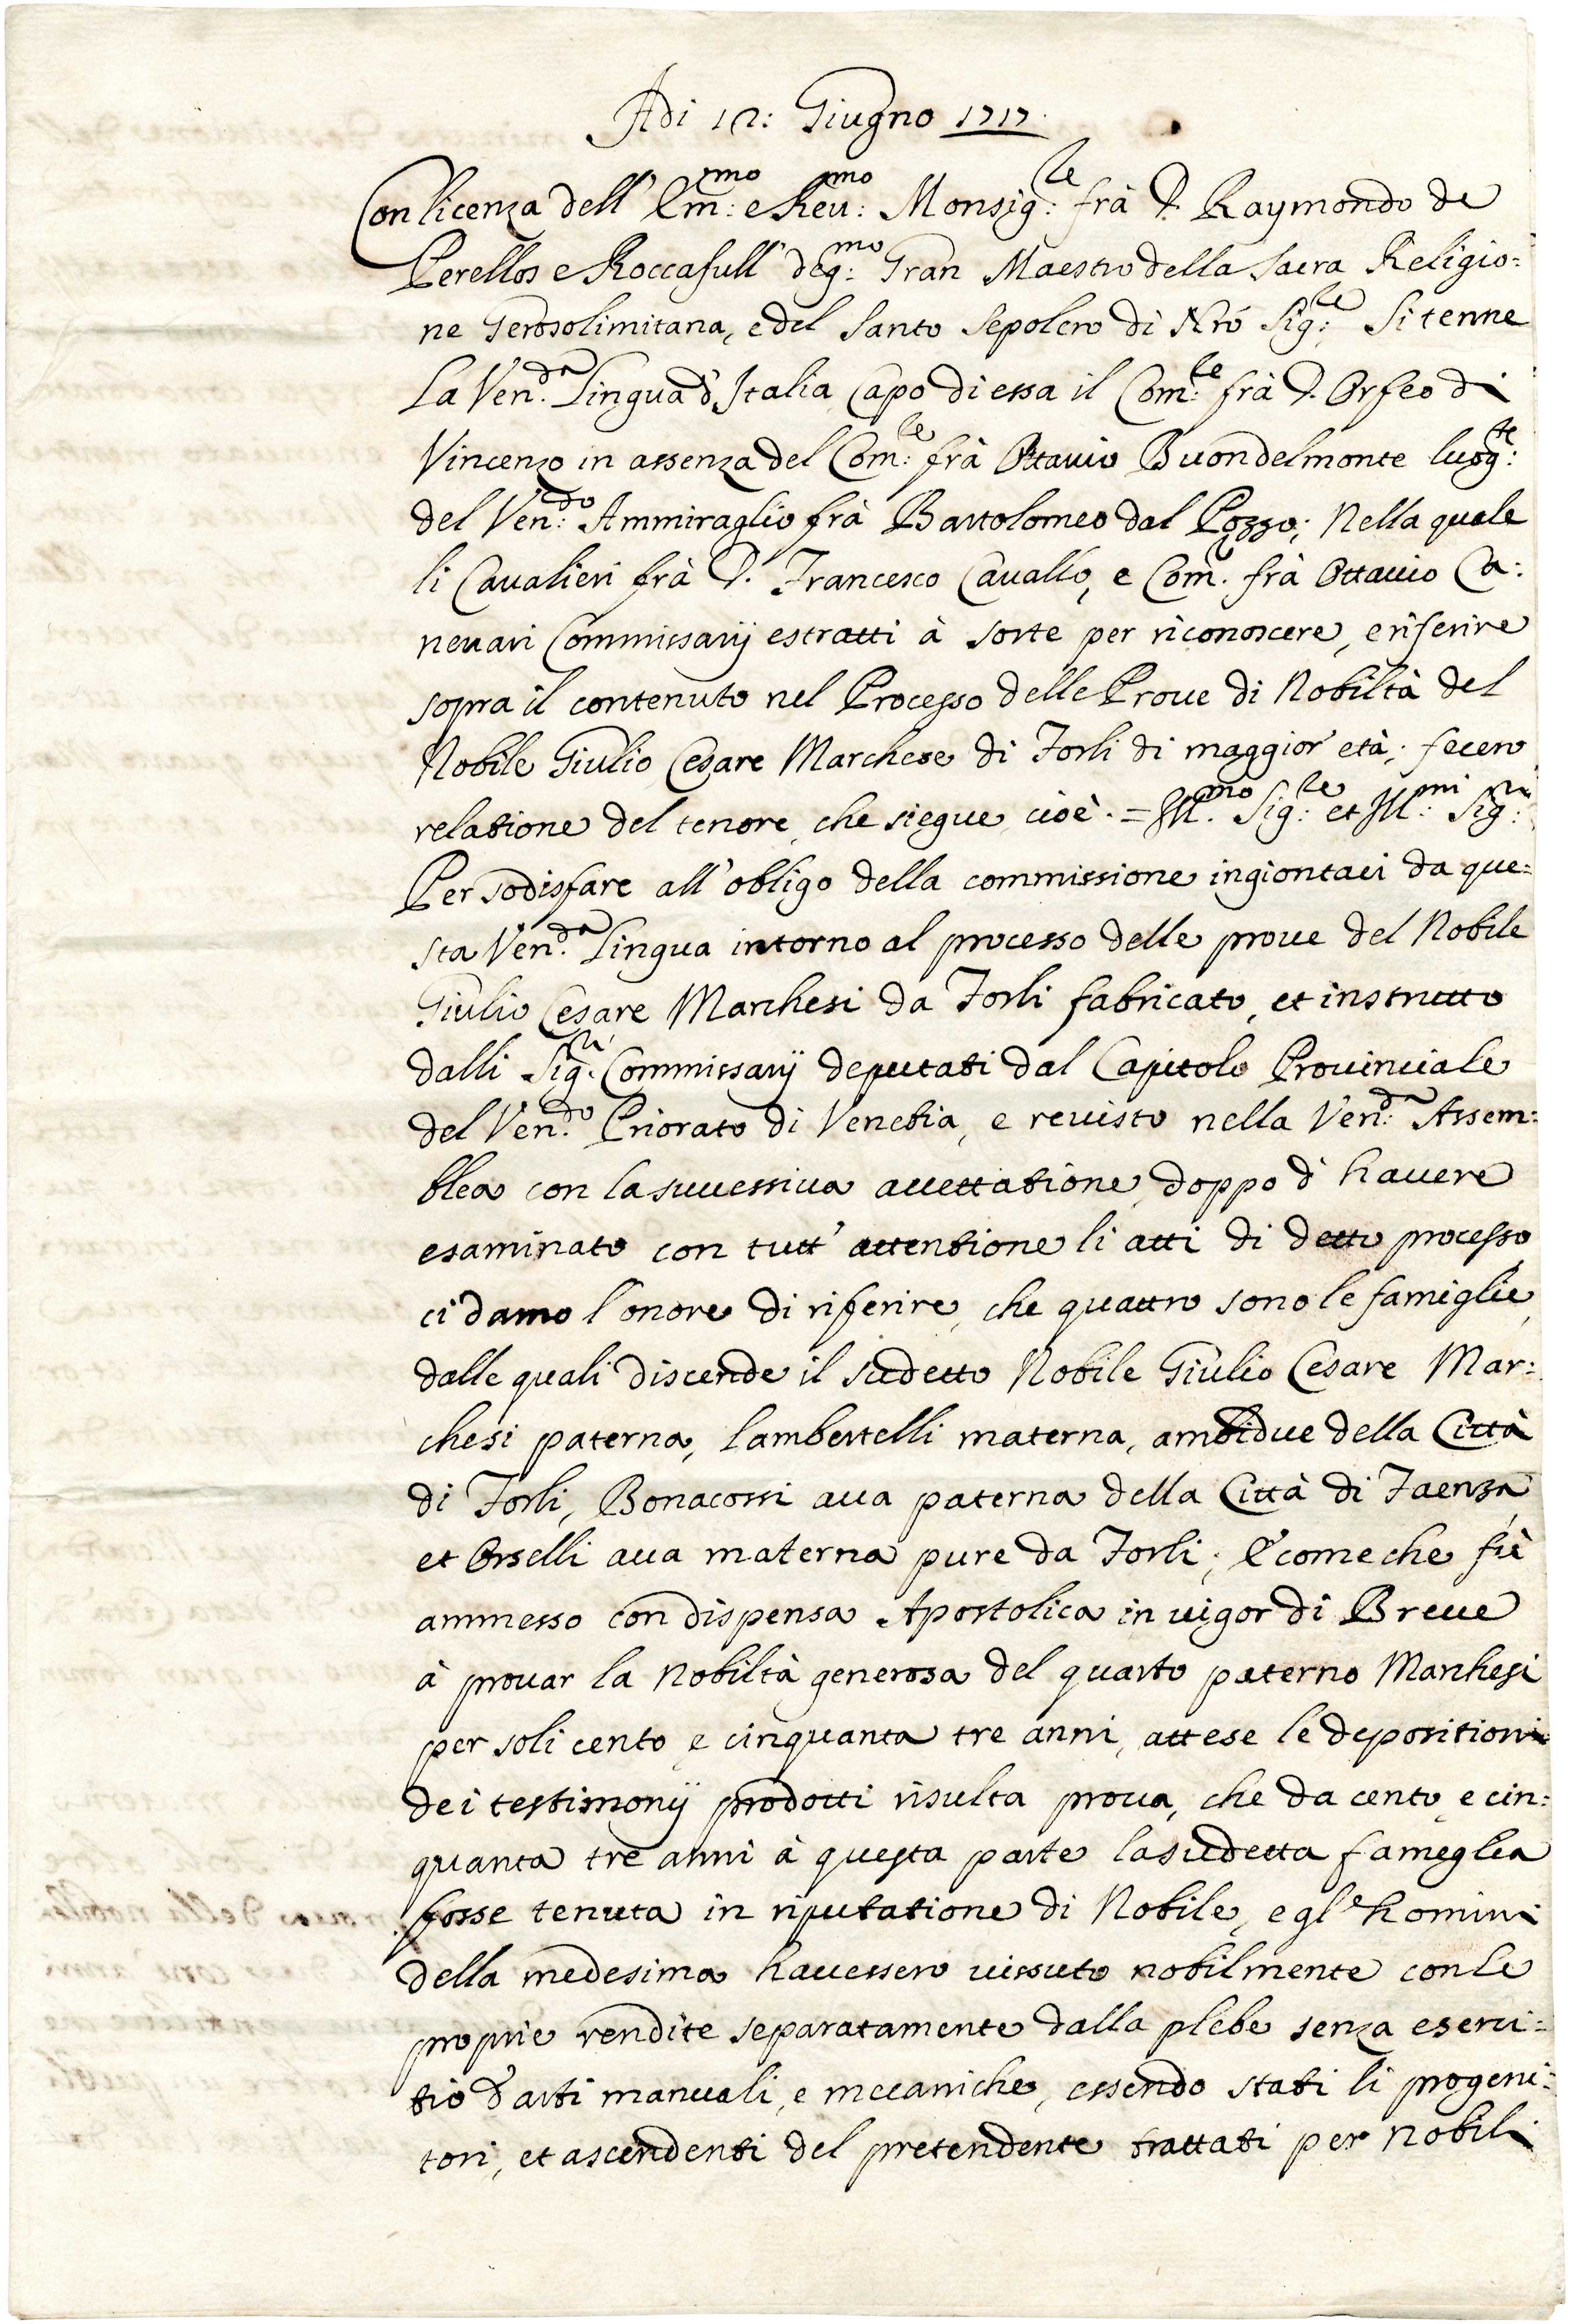 Adi 12: Giugno 1717.
Con licenza dell' Em:mo e Reu:mo Monsig:re frà D. Raymondo de
Perellos e Roccafull deg:mo Gran Maestro della Sacra Religio:
ne Gerosolimitana, e del Santo Sepolcro di Nro Sig:re Si tenne
La Ven:da Lingua d'Italia Capo di essa il Com:re frà D. Orfeo di
Vincenzo in assenza del Com:re frà Ottauio Buondelmonte luog:te
del Ven:do Ammiraglio frà Bartolomeo dal Pozzo; Nella quale
li Caualieri frà D. Francesco Cauallo, e Com:r frà Ottauio Ca:
neuari Commissarij estratti à sorte per riconoscere, e riferire
sopra il contenuto nel Processo delle Proue di Nobiltà del
Nobile Giulio Cesare Marchese di Forlì di maggior' età; fecero
relatione del tenore, che siegue, cioè. = Ill:mo Sig:re et Ill:mi Sig:ri
Per sodisfare all'obligo della commissione ingiontaci da que:
sta Ven:da Lingua intorno al processo delle proue del Nobile
Giulio Cesare Marchesi da Forlì fabricato, et instrutto
dalli Sig:ri Commissarij deputati dal Capitolo Prouinciale
del Ven:do Priorato di Venetia, e reuisto nella Ven:da Assem:
blea con la successiua accettatione, doppo d'hauere
esaminato con tutt' attentione li atti di detto processo
ci damo l'onore di riferire, che quattro sono le famiglie,
dalle quali discende il sudetto Nobile Giulio Cesare Mar:
chesi paterna, Lambertelli materna, ambidue della Città
di Forlì, Bonacossi aua paterna della Città di Faenza,
et Orselli aua materna pure da Forlì; E come che fù
ammesso con dispensa Apostolica in uigor di Breue
à prouar la Nobiltà generosa del quarto paterno Marchesi
per soli cento e cinquanta tre anni, attese le depositioni
dei testimonij prodotti risulta proua, che da cento, e cin:
quanta tre anni à questa parte la sudetta fameglia
fosse tenuta in riputatione di Nobile, e gl'homini
della medesima hauessero uissuto nobilmente con le
proprie rendite separatamente dalla plebe senza eserci:
tio d'arti manuali, e mecaniche, essendo stati li progeni:
tori, et ascendenti del pretendente trattati per nobili